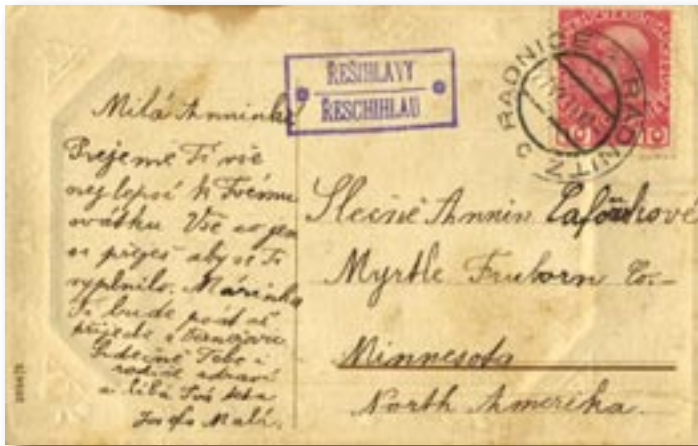 ŘEŠIHLAVY
ŘESCHIHLAU
RADNICE
RADNITZ
Milá Anninko
Přejeme Ti vše
nejlepší k Tvému
svátku Vše co jen
si přeješ aby se Ti
vyplnilo. Mařinka
Ti bude psát až
přijede
Srdečně Tebe i
rodiče zdraví
a líbá Tvá teta
Josefa Malá.
Slečně Annin
Myrtle Freborn Co.-
Minnesota
North Amerika.